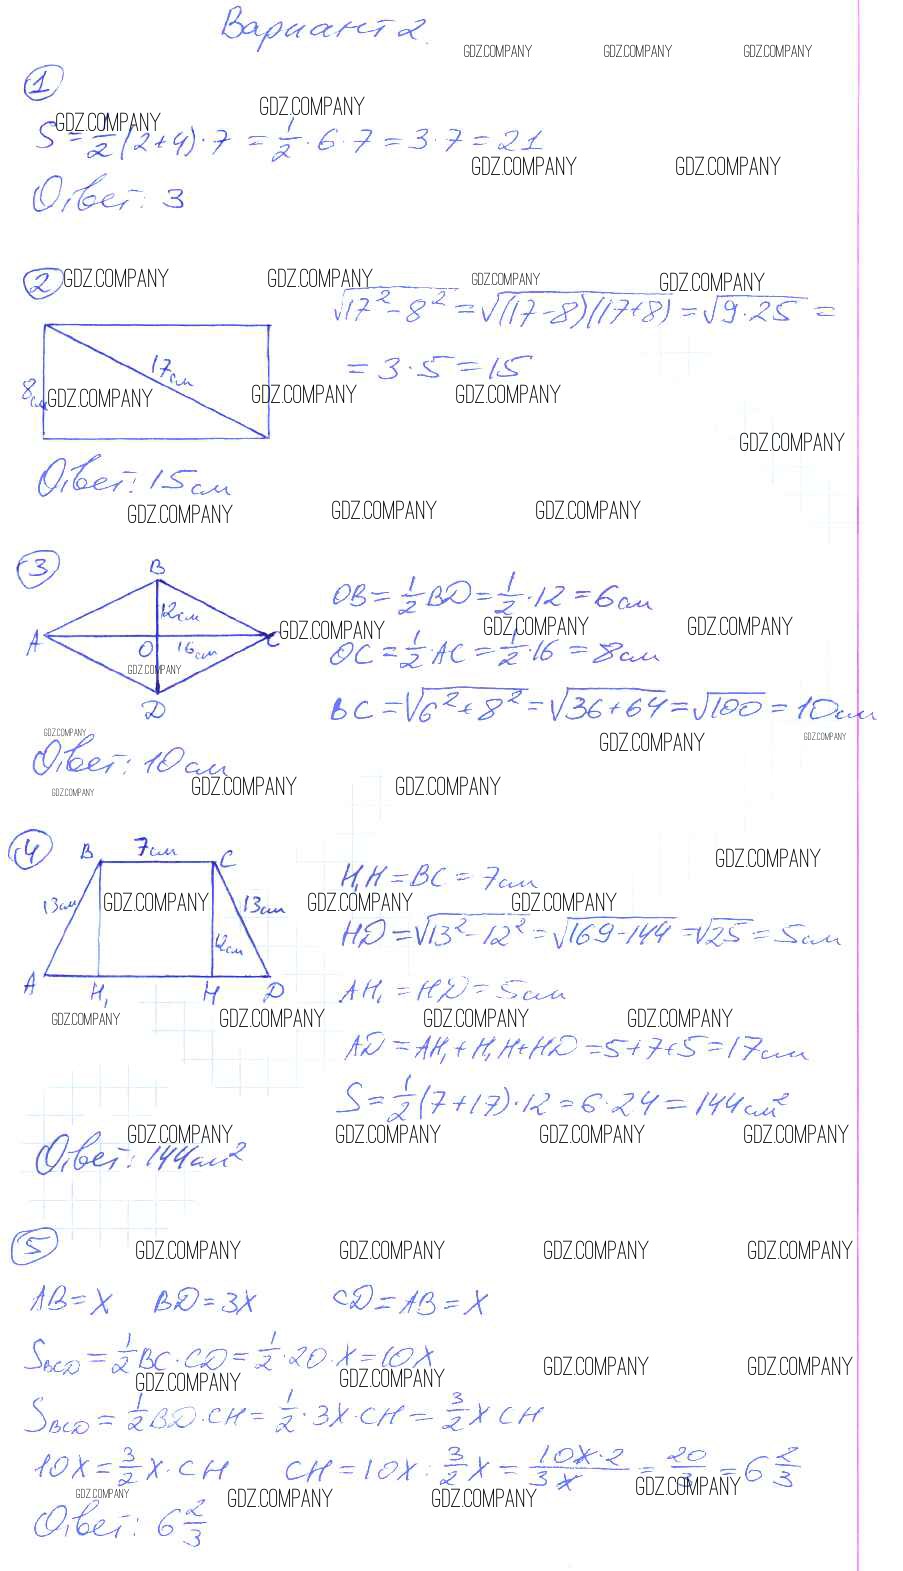 Вариант 2.
GDZ.COMPANY GDZ.COMPANY GDZ.COMPANY
1
GDZ.COMPANY GDZ.COMPANY
S = 1/2 (2+4)·7 = 1/2 · 6 · 7 = 3 · 7 = 21
GDZ.COMPANY GDZ.COMPANY
Ответ: 3
2 GDZ.COMPANY GDZ.COMPANY GDZ.COMPANY GDZ.COMPANY
√(17² - 8²) = √((17-8)(17+8)) = √(9·25) =
= 3 · 5 = 15
17 см
8 см
GDZ.COMPANY GDZ.COMPANY GDZ.COMPANY
GDZ.COMPANY
Ответ: 15 см
GDZ.COMPANY GDZ.COMPANY GDZ.COMPANY
3
B
12 см
A O 16 см C
D
OB = 1/2 BD = 1/2 · 12 = 6 см
GDZ.COMPANY GDZ.COMPANY GDZ.COMPANY
OC = 1/2 · AC = 1/2 · 16 = 8 см
GDZ.COMPANY
BC = √(6² + 8²) = √(36+64) = √100 = 10 см
GDZ.COMPANY GDZ.COMPANY GDZ.COMPANY
Ответ: 10 см
GDZ.COMPANY GDZ.COMPANY GDZ.COMPANY
4
B 7 см C
13 см 13 см
12 см
A H₁ H D
GDZ.COMPANY
H₁H = BC = 7 см
GDZ.COMPANY GDZ.COMPANY GDZ.COMPANY
HD = √(13² - 12²) = √(169-144) = √25 = 5 см
AH₁ = HD = 5 см
GDZ.COMPANY GDZ.COMPANY GDZ.COMPANY GDZ.COMPANY
AD = AH₁ + H₁H + HD = 5+7+5 = 17 см
S = 1/2 (7+17)·12 = 6·24 = 144 см²
GDZ.COMPANY GDZ.COMPANY GDZ.COMPANY GDZ.COMPANY
Ответ: 144 см²
5
GDZ.COMPANY GDZ.COMPANY GDZ.COMPANY GDZ.COMPANY
AB = x BD = 3x CD = AB = x
S BCD = 1/2 BC · CD = 1/2 · 20 · x = 10x
GDZ.COMPANY GDZ.COMPANY GDZ.COMPANY GDZ.COMPANY
S BCD = 1/2 BD · CH = 1/2 · 3x · CH = 3/2 x CH
10x = 3/2 x · CH CH = 10x : 3/2 x = 10x·2/3x = 20/3 = 6 2/3
GDZ.COMPANY GDZ.COMPANY GDZ.COMPANY GDZ.COMPANY
Ответ: 6 2/3